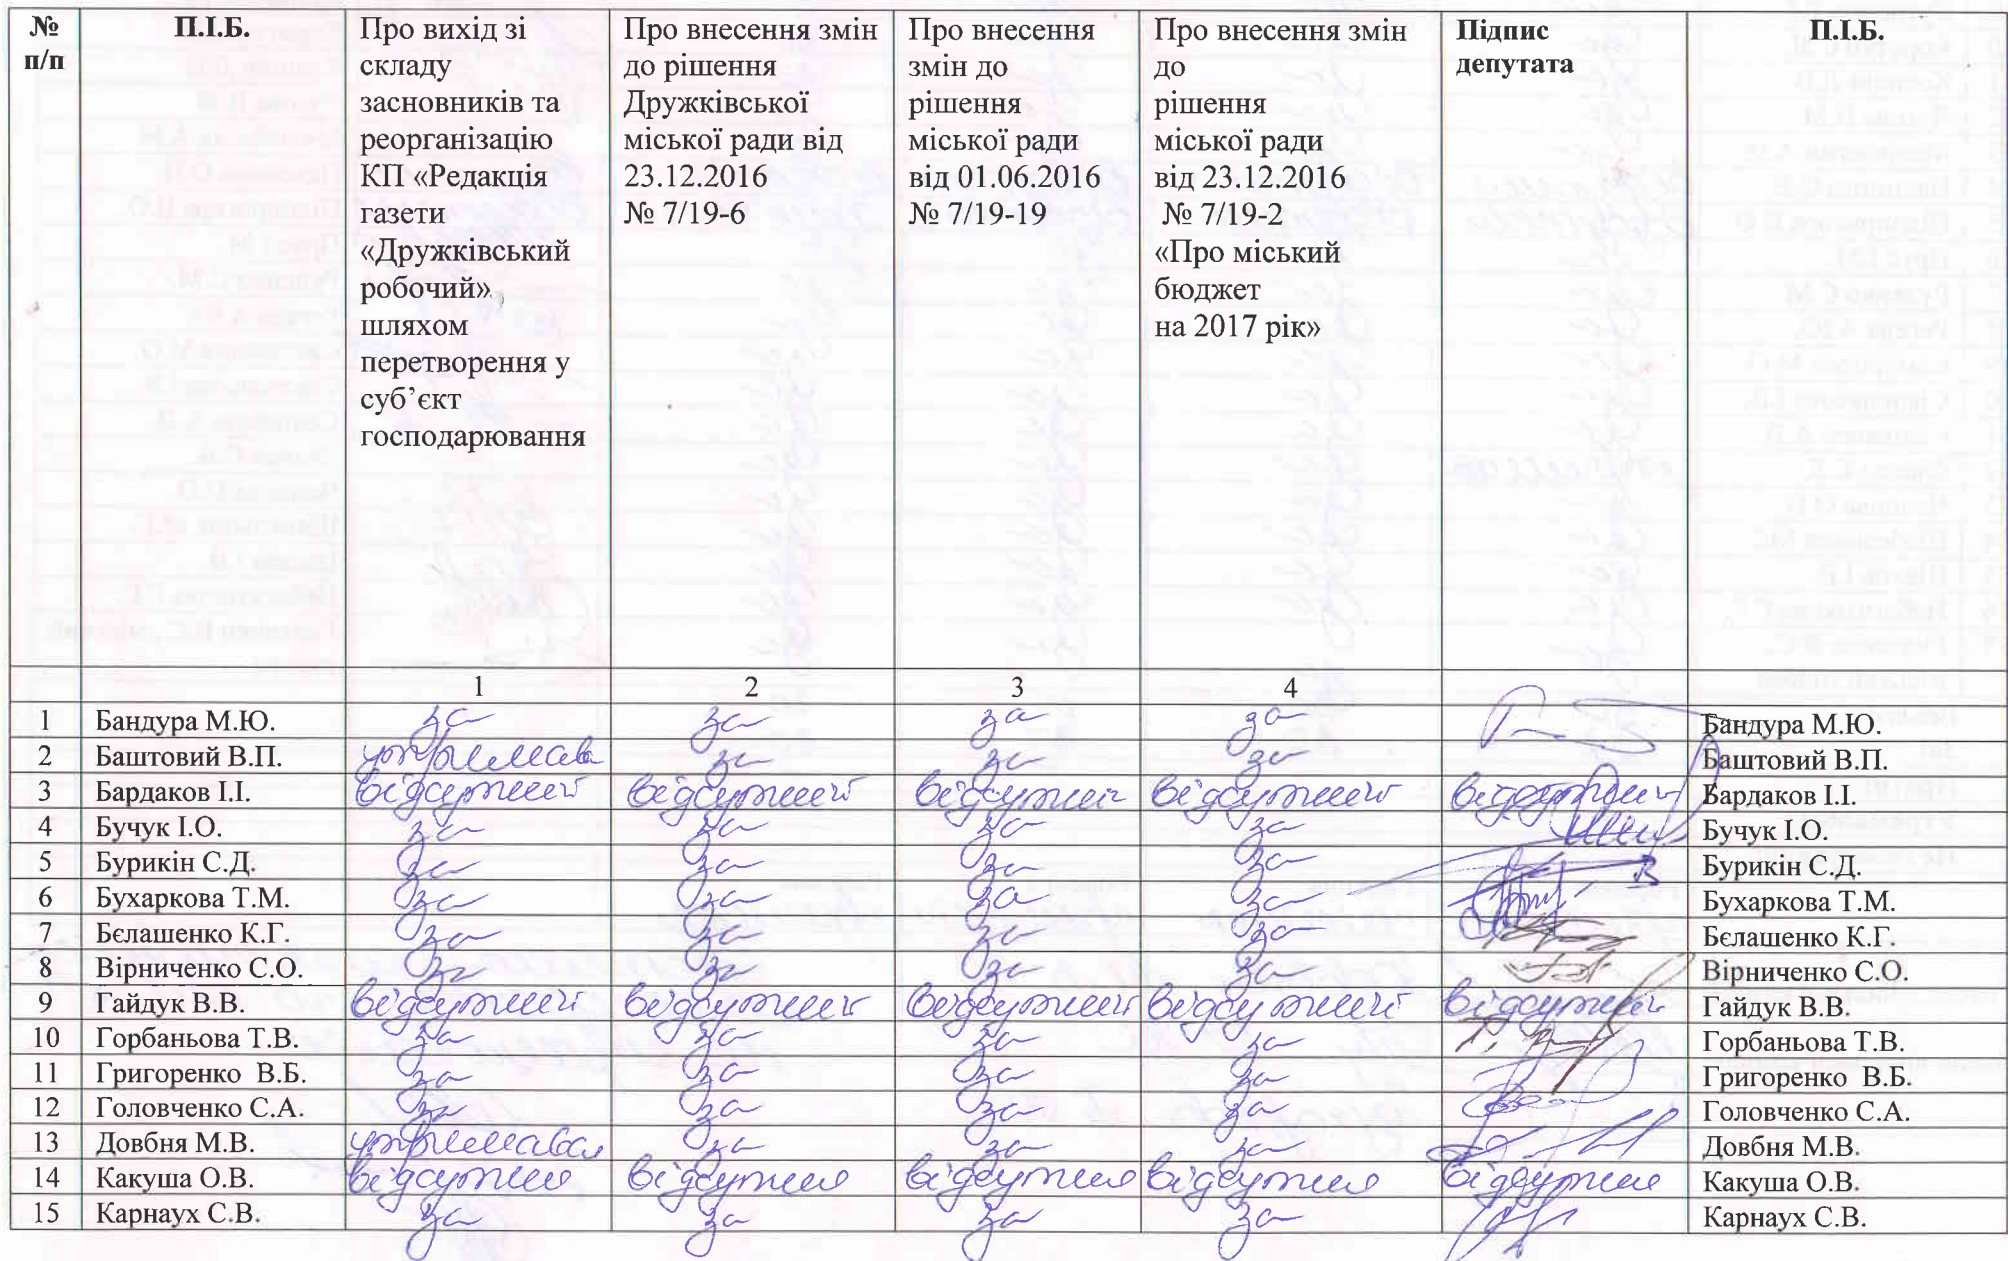 № п/п | П.І.Б. | Про вихід зі складу засновників та реорганізацію КП «Редакція газети «Дружківський робочий» шляхом перетворення у суб’єкт господарювання | Про внесення змін до рішення Дружківської міської ради від 23.12.2016 № 7/19-6 | Про внесення змін до рішення міської ради від 01.06.2016 № 7/19-19 | Про внесення змін до рішення міської ради від 23.12.2016 № 7/19-2 «Про міський бюджет на 2017 рік» | Підпис депутата | П.І.Б.
1 | 2 | 3 | 4
1 | Бандура М.Ю. | за | за | за | за | Бандура М.Ю.
2 | Баштовий В.П. | утримав | за | за | за | Баштовий В.П.
3 | Бардаков І.І. | відсутній | відсутній | відсутній | відсутній | відсутній | Бардаков І.І.
4 | Бучук І.О. | за | за | за | за | Бучук І.О.
5 | Бурикін С.Д. | за | за | за | за | Бурикін С.Д.
6 | Бухаркова Т.М. | за | за | за | за | Бухаркова Т.М.
7 | Бєлашенко К.Г. | за | за | за | за | Бєлашенко К.Г.
8 | Вірниченко С.О. | за | за | за | за | Вірниченко С.О.
9 | Гайдук В.В. | відсутній | відсутній | відсутній | відсутній | відсутній | Гайдук В.В.
10 | Горбаньова Т.В. | за | за | за | за | Горбаньова Т.В.
11 | Григоренко В.Б. | за | за | за | за | Григоренко В.Б.
12 | Головченко С.А. | за | за | за | за | Головченко С.А.
13 | Довбня М.В. | утримався | за | за | за | Довбня М.В.
14 | Какуша О.В. | відсутня | відсутня | відсутня | відсутня | відсутня | Какуша О.В.
15 | Карнаух С.В. | за | за | за | за | Карнаух С.В.